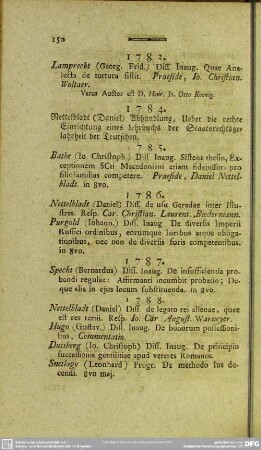 150
1782.
Lamprecht (Georg. Frid.) Diss. Inaug. Quae Ana-
lecta de tortura sistit. Praeside, Io. Christian.
Woltaer.
Verus Auctor est D. Henr. Io. Otto Koenig.
1784.
Nettelbladt (Daniel) Abhandlung, Ueber die rechte
Einrichtung eines Lehrbuchs der Staatsrechtsge-
lahrheit der Teutschen.
1785.
Bathe (Io. Christoph.) Diss. Inaug. Sistens thesin, Ex-
ceptionem SCti Macedoniani etiam fidejussori pro
filiofamilias competere. Praeside, Daniel Nettel-
bladt. in 8vo.
1786.
Nettelbladt (Daniel) Diss. de usu Geradae inter Illu-
stres. Resp. Car. Christian. Laurent. Biedermann.
Purgold (Iohann.) Diss. Inaug. De diversis Imperii
Russici ordinibus, eorumque iuribus atque obliga-
tionibus, nec non de diversis furis competentibus.
in 8vo.
1787.
Specht (Bernardus) Diss. Inaug. De insufficientia pro-
bandi regulae: Affirmanti incumbit probatio; De-
que alia in ejus locum substituenda. in 8vo.
1788.
Nettelbladt (Daniel) Diss. de legato rei alienae, quae
est res tertii. Resp. Io. Car. August.
Hugo (Gustav.) Diss. Inaug. De bonorum possessioni-
bus, Commentatio.
Duisberg (Io. Christoph) Diss. Inaug. De principio
successionis gentilitiae apud veteres Romanos.
Snetlage (Leonhard) Progr. De methodo Ius do-
cendi. 8vo maj.
DFG